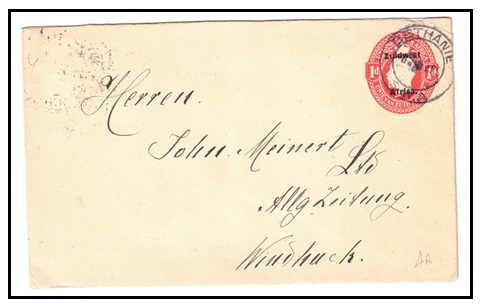 BETHANIE
Zuidwest
1d 1d
Afrika.
Herren.
John Meinert Ltd
Allg Zeitung.
Windhuck.